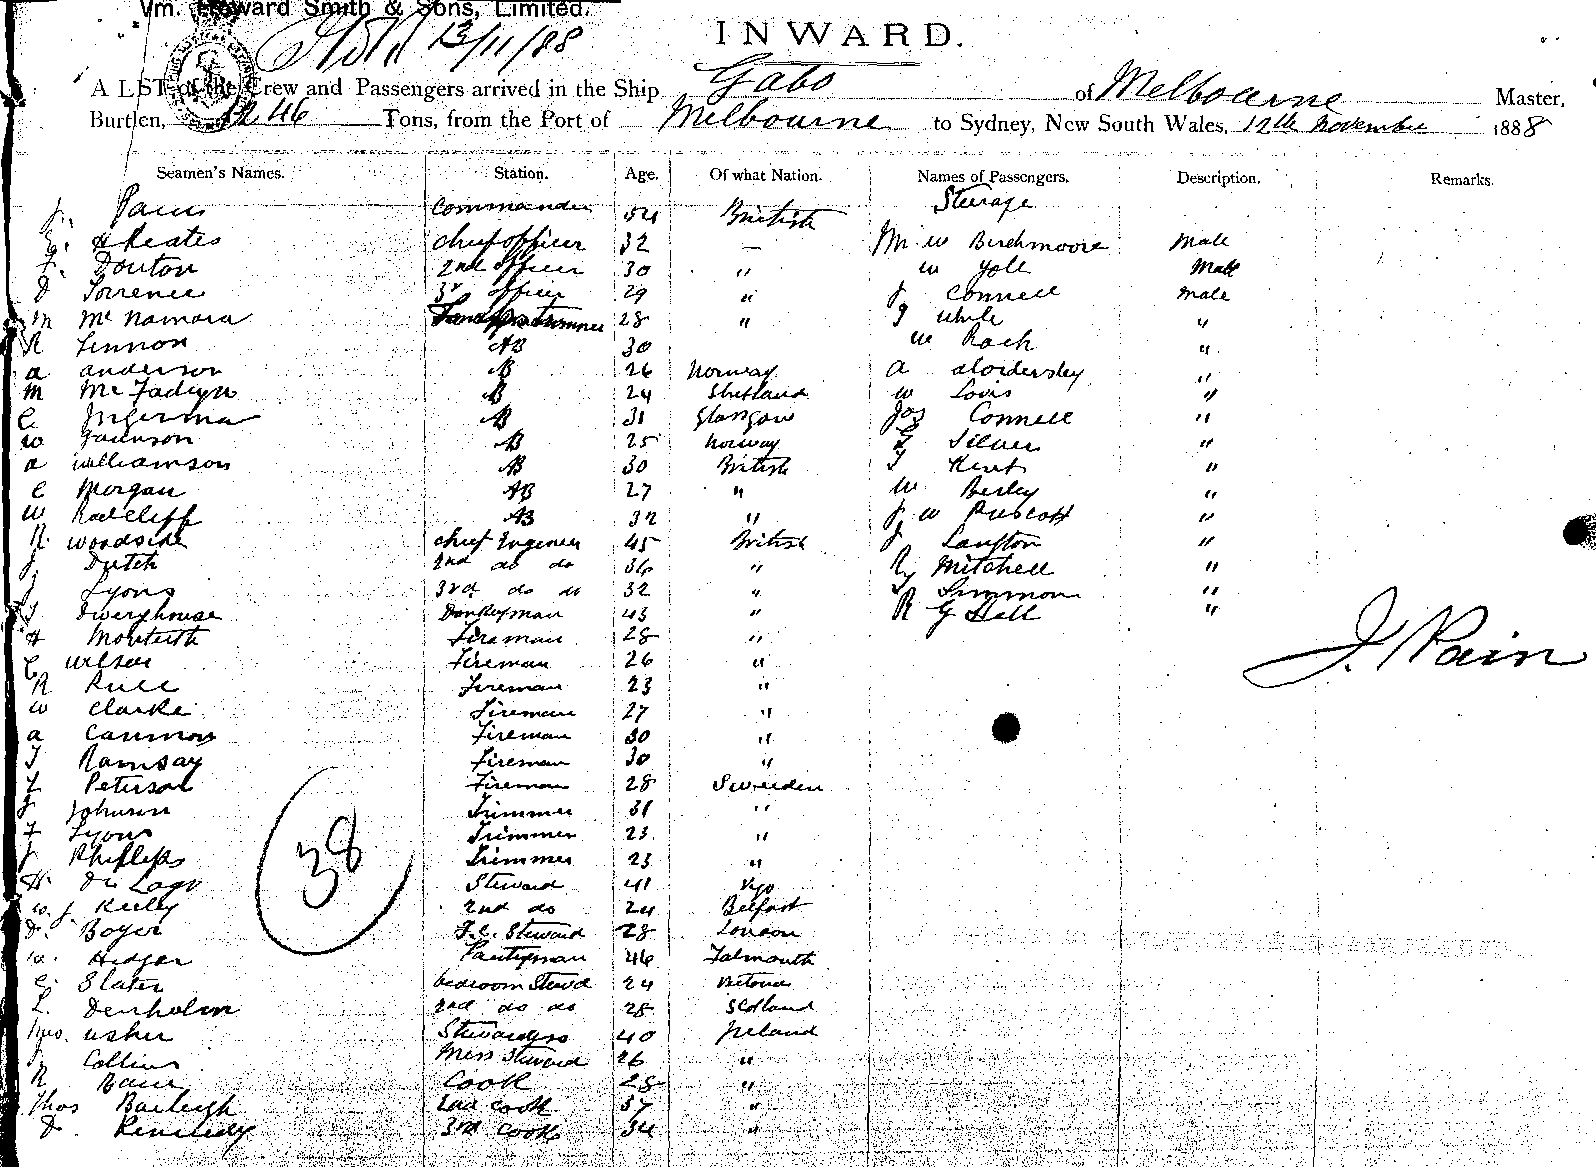 Wm. Howard Smith & Sons, Limited.
13/11/88
INWARD.
A LIST of the Crew and Passengers arrived in the Ship Gabo of Melbourne Master,
Burthen, 1246 Tons, from the Port of Melbourne to Sydney, New South Wales, 12th November 1888
Seamen's Names. Station. Age. Of what Nation. Names of Passengers. Description. Remarks.
J. Pain Commander 54 British Steerage
H Keates chief officer 32 — Mr W Birchmoore Male
F. Douton 2nd officer 30 " W Yoll Male
D Torrence 3rd officer 29 " J Connell Male
M McNamara 28 " J White "
R Lennon AB 30 W Roch "
A Anderson AB 26 Norway A "
M McFadyn AB 24 Shetland W Lovis "
C AB 31 Glasgow Jos Connell "
W AB 25 Norway Silver "
A Williamson AB 30 British T Kent "
C Morgan AB 27 " W Besley "
W Ratcliff AB 32 " J W Prescott "
R Woodside chief Engineer 45 British J Langton "
J. Dutch 2nd do do 36 " Hy Mitchell "
J Lyons 3rd do do 32 " Simmons "
T Dwerryhouse Donkeyman 43 " R G Hall "
H Monteith Fireman 28 "
J. Pain
C Wilson Fireman 26 "
R Rull Fireman 23 "
W Clarke Fireman 27 "
A Cannon Fireman 30 "
T Ramsay Fireman 30 "
Peterson Fireman 28 Sweeden
J Johnson Trimmer 31 "
F Lyons Trimmer 23 "
38
J Phillips Trimmer 23 "
H. De Lago Steward 41 Vigo
W. J. Kieley 2nd do 24 Belfast
D. Boyer F.C. Steward 28 London
W. Hedger Pantryman 46 Falmouth
C. Slater bedroom Stewd 24
L. Denholm 2nd do do 28 Scotland
Mrs. Usher Stewardess 40 Ireland
Collins Mess Steward 26 "
R Cook 28 "
Thos Barleigh 2nd cook 37 "
D. Kennedy 3rd cook 34 "